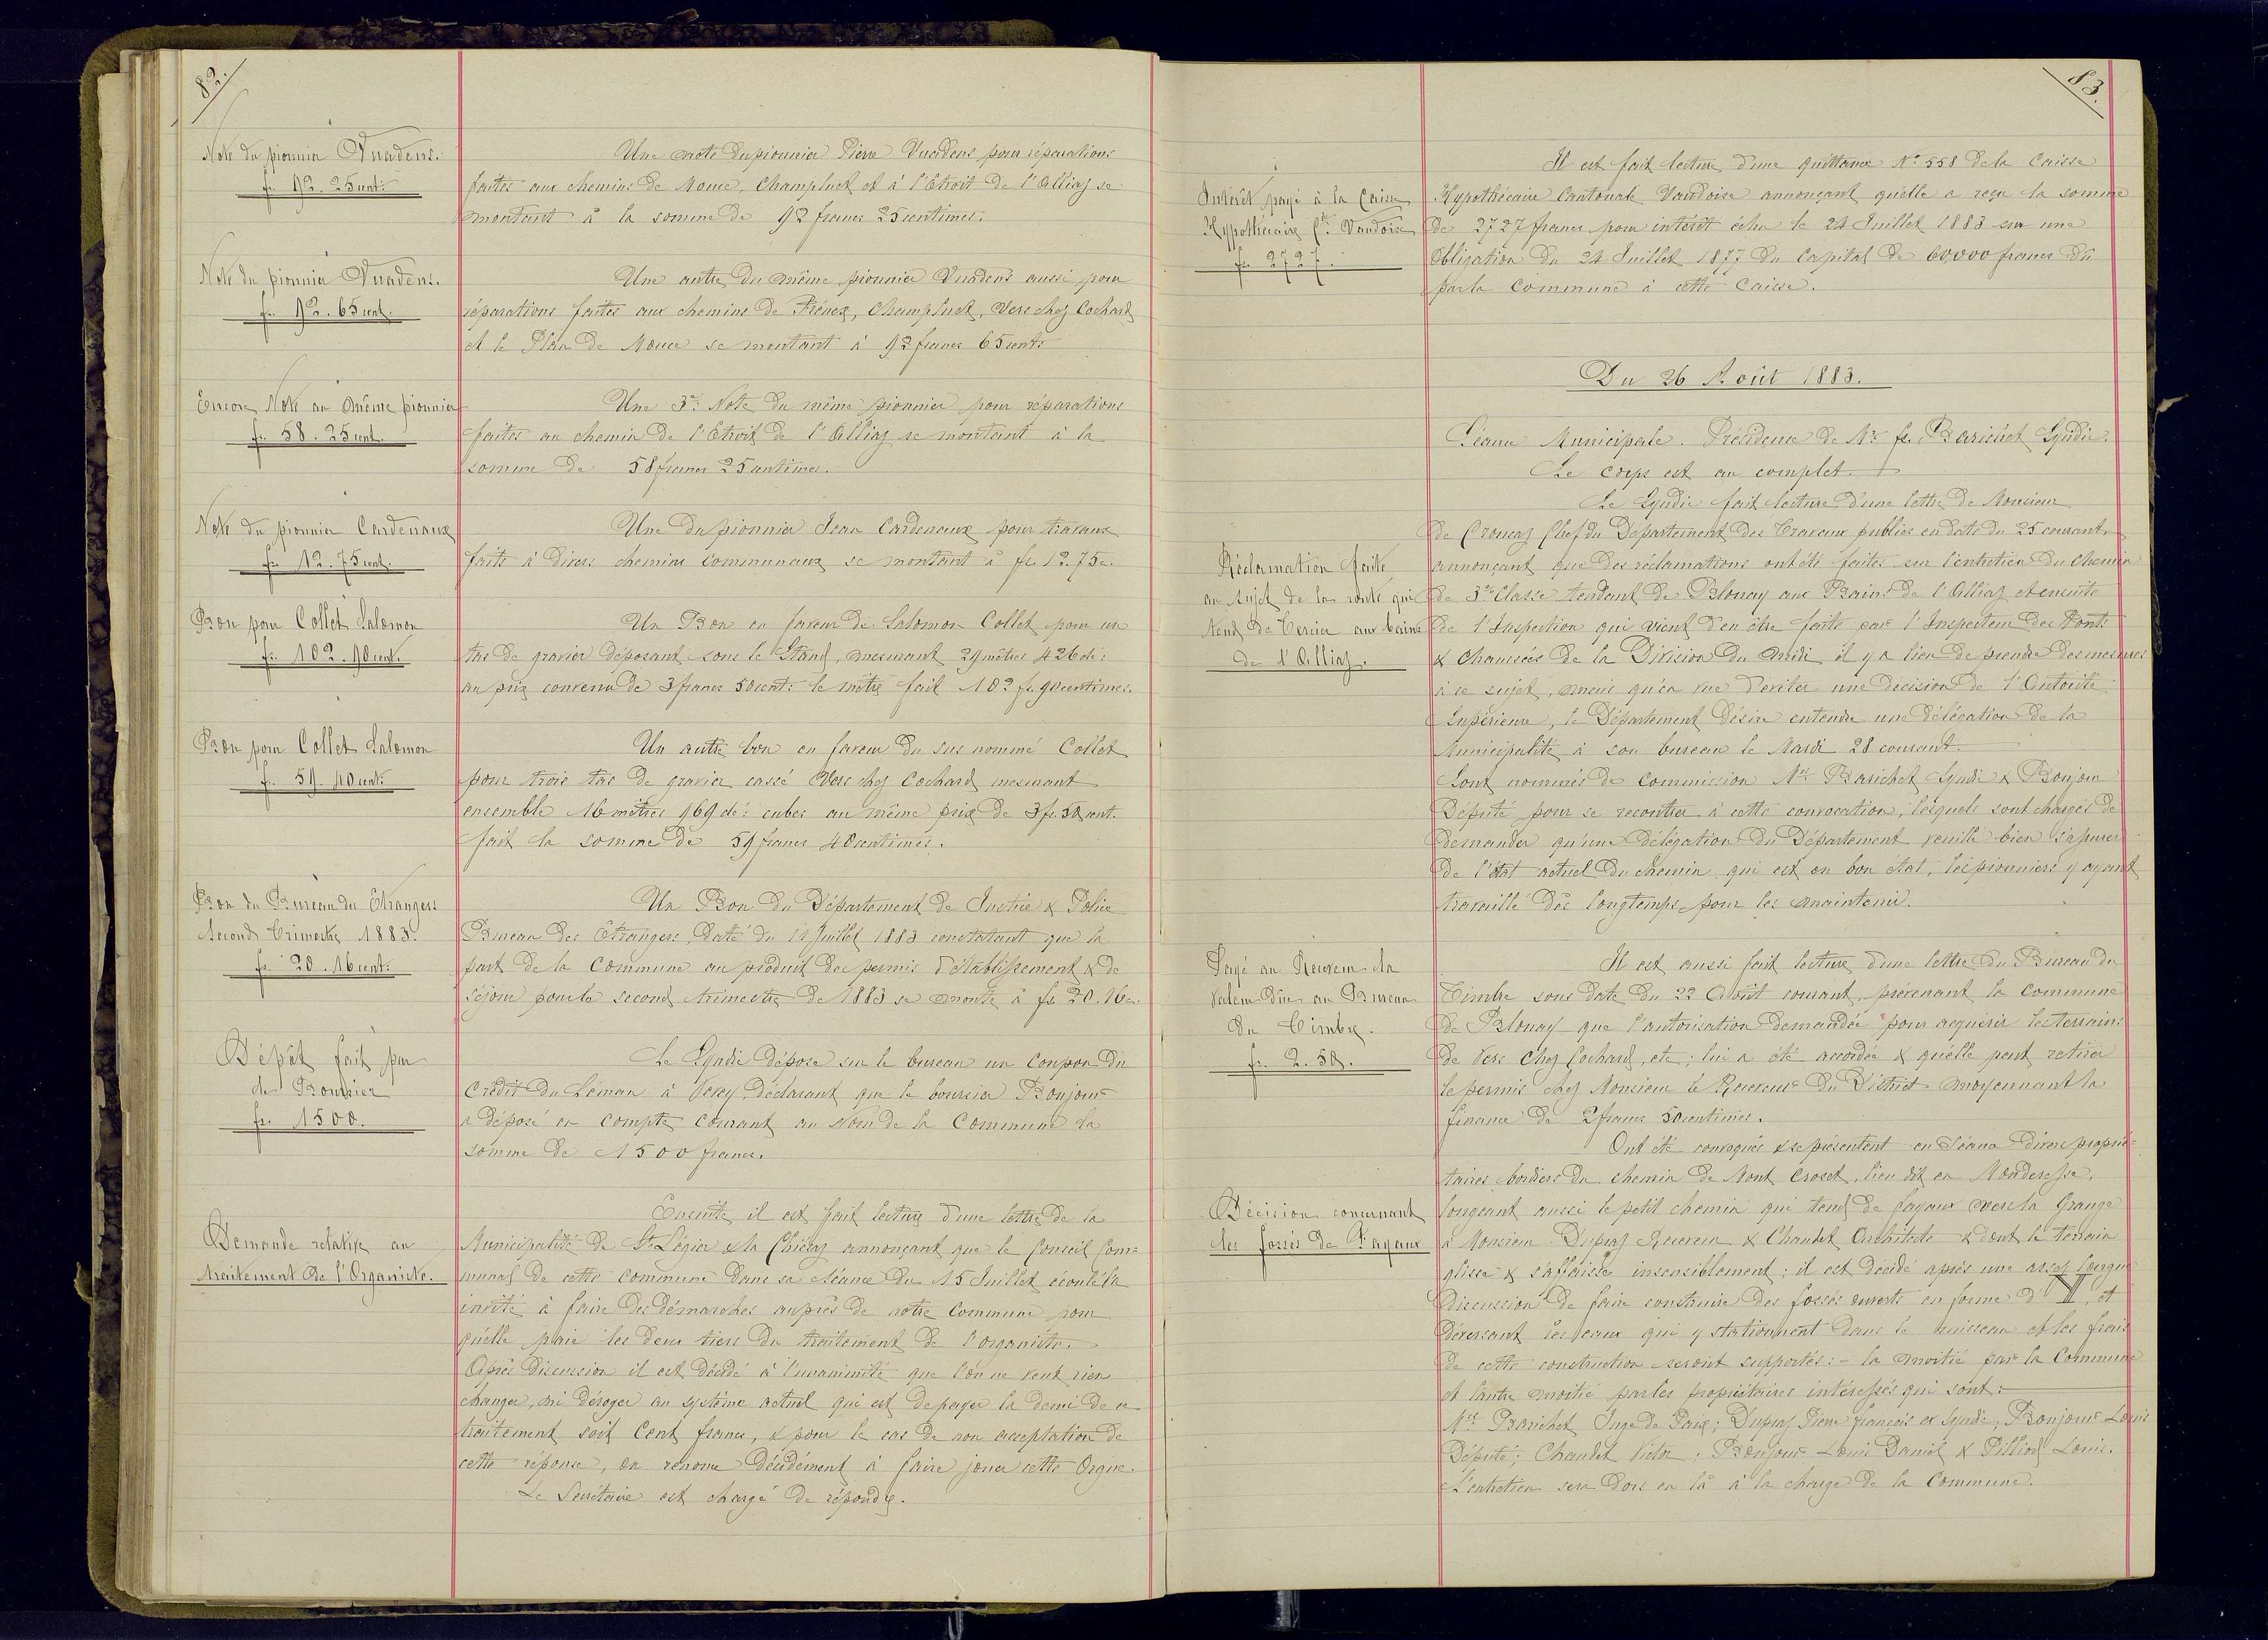 82.
Note du pionnier Vuadens.
fr. 92. 25 cent:
Une note du pionnier Pierre Vuadens pour réparations
faites aux chemins de Mouce, Champluet et à l'Etroit de l'Alliaz se
montant à la somme de 92 francs 25 centimes.
Note du pionnier Vuadens.
fr. 92. 65 cent.
Une autre du même pionnier Vuadens aussi pour
réparations faites aux chemins de Champluet, Vers chez Cochard
et le Plan de Mouce se montant à 92 francs 65 cents
Encore Note au même pionnier
fr. 58. 25 cent.
Une 3me Note du même pionnier pour réparations
faites au chemin de l'Etroit de l'Alliaz se montant à la
somme de 58 francs 25 centimes.
Note du pionnier Cardenaux
fr. 12. 75 cent.
Une du pionnier Jean Cardenaux pour travaux
faits à divers chemins communaux se montant à fr. 12. 75 c.
Bon pour Collet Salomon
fr. 102. 90 cent.
Un Bon en faveur de Salomon Collet pour un
tas de gravier déposant sous le Stand, mesurant 29 mètres 426 dé:
au prix convenu de 3 francs 50 cent: le mètre fait 102 fr. 90 centimes.
Bon pour Collet Salomon
fr. 59. 40 cent:
Un autre bon en faveur du sus nommé Collet
pour trois tas de gravier cassé Vers chez Cochard mesurant
ensemble 16 mètres 969 dé: cubes au même prix de 3 fr. 50 cent.
fait la somme de 59 francs 40 centimes.
Bon du Bureau des Etrangers
Second Trimestre 1883.
fr. 20. 16 cent:
Un Bon du Département de Justice & Police
Bureau des Etrangers, daté du Juillet 1883 constatant que la
part de la Commune au produit des permis d'établissement & de
séjour pour le second trimestre de 1883 se monte à fr. 20. 16 c.
Dépôt fait par
le Boursier
fr. 1500.
Le Syndic dépose sur le bureau un coupon du
Crédit du Léman à Vevey déclarant que le boursier Bonjour
a déposé en compte courant au Nom de la Commune la
somme de 1500 francs.
Demande relative au
traitement de l'Organiste.
Ensuite il est fait lecture d'une lettre de la
Municipalité de St Légier & la Chiésaz annonçant que le Conseil Com=
munal de cette commune dans sa séance du 15 Juillet écoulé l'a
invité à faire des démarches auprès de notre Commune pour
qu'elle paie les deux tiers du traitement de l'organiste.
Après discussion il est décidé à l'unanimité que l'on ne veut rien
changer, ni déroger au système actuel qui est de payer la demi de ce
traitement soit Cent francs, & pour le cas de non acceptation de
cette réponse, on renonce décidément à faire jouer cette Orgue.
Le Secrétaire est chargé de répondre.
83.
Intérêt payé à la Caisse
Hypothécaire Cle Vaudoise
fr. 2727.
Il est fait lecture d'une quittance No 558 de la Caisse
Hypothécaire Cantonale Vaudoise annonçant qu'elle a reçu la somme
de 2727 francs pour intérêt échu le 24 Juillet 1883 sur une
Obligation du 24 Juillet 1877 du Capital de 60,000 francs dû
par la Commune à cette Caisse.
Du 26 Août 1883.
Séance Municipale. Présidence de Mr fs. Barichet Syndic.
Le corps est au complet.
Le Syndic fait lecture d'une lettre de Monsieur
de Crousaz Chef du Département des Travaux publics en date du 25 courant,
Réclamation faite
au sujet de la route qui
tend de Tercier aux bains
de l'Alliaz.
annonçant que des réclamations ont été faites sur l'entretien du chemin
de 3me Classe tendant de Blonay aux Bains de l'Alliaz et ensuite
de l'Inspection qui vient d'en être faite par l'Inspecteur des Ponts
& Chaussées de la Division du midi il y a lieu de prendre des mesures
à ce sujet, mais qu'en vue d'eviter une decision de l'Autorité
Supérieure, le Département désire entendre une délégation de la
Municipalité à son bureau le Mardi 28 courant.
Sont nommés de Commission Mrs Barichet Syndic & Bonjour
Député pour se recontrer à cette convocation, lesquels sont chargés de
demander qu'une délégation du Département veuille bien s'assurer
de l'état actuel du chemin qui est en bon état, les pionniers y ayant
travaillé dès longtemps pour les maintenir.
Payé au Receveur la
valeur due au Bureau
du Timbre.
fr. 2. 50.
Il est aussi fait lecture d'une lettre du Bureau du
Timbre sous date du 22 Août courant, prévenant la Commune
de Blonay que l'autorisation demandée pour acquérir les terrains
de Vers Chez Cochard, etc; lui a été accordée & qu'elle peut retirer
le permis chez Monsieur le Receveur du District moyennant la
finance de 2 francs 50 centimes.
Ont été convoqués & se présentent en Séance divers proprié-
taires bordiers du chemin de Mont Croset, lieu dit en Monderesse,
Décision concernant
les fossés de Fayaux
longeant aussi le petit chemin qui tend de fayaux vers la Grange
à Monsieur Dupraz Receveur & Chaudet Architecte & dont le terrain
glisse & s'affaisse insensiblement; il est décidé après une assez longue
discussion de faire construire des fossés ouverts en forme d' , et
déversant les eaux qui y stationnent dans le ruisseau et les frais
de cette construction seront supportés:= la moitié par la Commune
et l'autre moitié par les propriétaires intéressés qui sont:
Mrs Barichet Juge de Paix; Dupraz Pierre françois ex Syndic; Bonjour Louis
Député; Chaudet Victor; Bonjour Louis Daniel & Pilliod Louis.
L'entretien sera dors en là à la charge de la Commune.